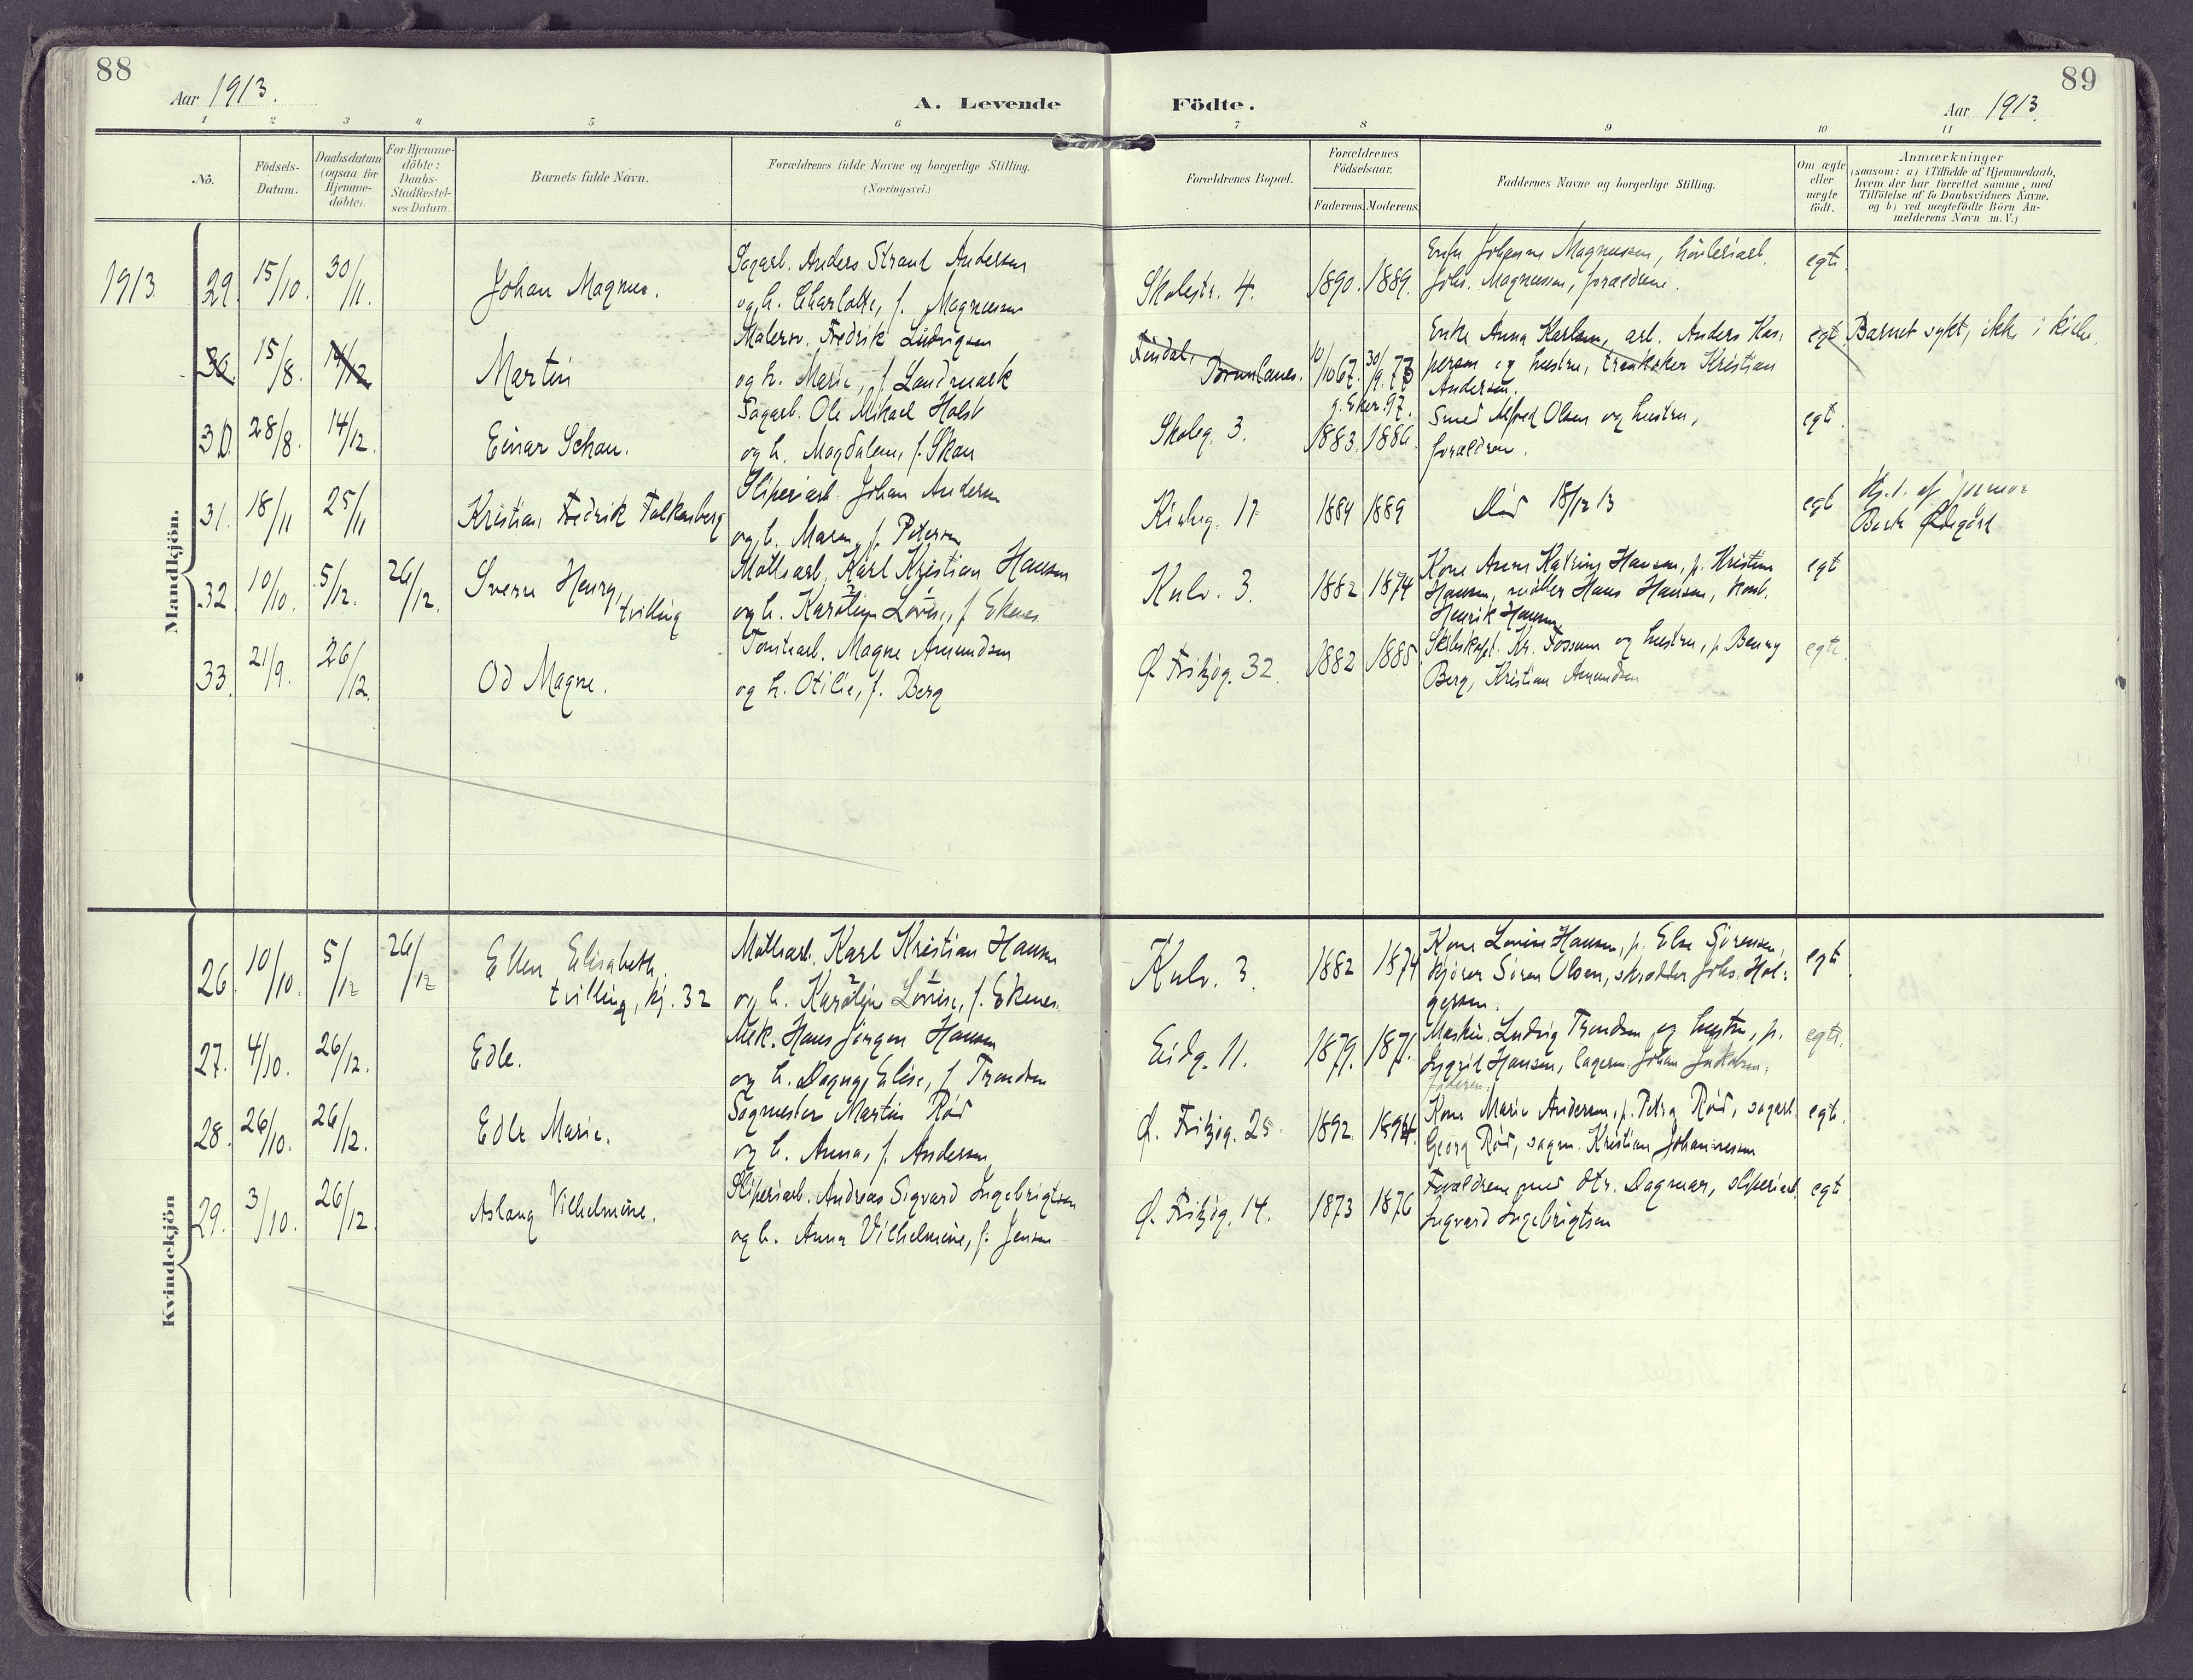 88
Aar 1913.
A. Levende
Födte.
Aar 1913.
89
1 2 3 4 5 6 7 8 9 10 11
No.
Födsels-
Datum.
Daabsdatum
(ogsaa for
Hjemme-
döbte).
For Hjemme-
döbte:
Daabs-
Stadfæstel-
ses Datum.
Barnets fulde Navn.
Forældrenes fulde Navne og borgerlige Stilling.
(Næringsvei.)
Forældrenes Bopæl.
Forældrenes
Födselsaar.
Faderens. Moderens.
Faddernes Navne og borgerlige Stilling.
Om ægte
eller
uægte
födt.
Anmærkninger
(saasom: a) i Tilfælde af Hjemmedaab,
hvem der har forrettet samme, med
Tilföielse af to Daabsvidners Navne,
og b) ved uægtefödte Börn An-
melderens Navn m. V.)
Mandkjön.
1913
29. 15/10. 30/11. Johan Magnus.
Sagarb. Anders Strand Andersen
og h. Charlotte, f. Magnussen
Skolegt. 4. 1890. 1889.
Enke Johanne Magnussen, hövleriarb.
Johs. Magnussen, forældrene.
egte.
30. 15/8. 14/12 Martin
Malersv. Fredrik Ludvigsen
og h. Marie, f. Landmark
Findal, Brunlanes. 10/10 67. 30/9. 73
g. Eker. 97.
Enke Anna Karlsen, arb. Anders Kas-
persen og hustru, trankoker Kristian
Andersen.
egt. Barnet sykt, ikke i kirke.
30. 28/8. 14/12. Einar Schau.
Sagarb. Ole Mikael Holst
og h. Magdalene, f. Skau
Skoleg. 3. 1883. 1886.
Smed Alfred Olsen og hustru,
forældren.
egt.
31. 18/11 25/11 Kristian Fredrik Falkenberg
Sliperiarb. Johan Andersen
og h. Maren, f. Petersen
Kirkeg. 17 1884 1889
Död 18/12 13
egt
Hj.d. af jormor
Berte Ödegård
32. 10/10. 5/12. 26/12. Sverre Henry,
tvilling
Möllearb. Karl Kristian Hansen
og h. Karoline Lovise, f. Ekenes
Kulv. 3. 1882 1874
Kone Anna Katrine Hansen, p. Kristine
Hansen, möller Hans Hansen,
Henrik Hansen
egt
33. 21/9. 26/12. Od Magne.
Tomtearb. Magne Amundsen
og h. Otilie, f. Berg
Ö. Fritzög. 32. 1882 1885
Kr. Fossum og hustru, p. Benny
Berg, Kristian Amundsen
egte.
Kvindekjön
26. 10/10. 5/12 26/12 Ellen Elisabeth,
tvilling, kj. 32
Möllearb. Karl Kristian Hansen
og h. Karoline Lovise, f. Ekenes.
Kulv. 3. 1882 1874
Kone Lovise Hansen, p. Else Sörensen,
kjörer Sören Olsen, skrædder Johs. Hol-
gersen.
egte.
27. 4/10. 26/12. Edle.
Mek. Hans Jörgen Hansen
og h. Dagny Elise, f. Trondsen
Eidg. 11. 1879. 1871.
Maskin. Ludvig Trondsen og hustru, p.
Ingrid Hansen, lagerm. Johan Jakobsen,
faderen.
egte.
28. 26/10. 26/12. Edle Marie.
Sagmester Martin Röd
og h. Anna, f. Andersen
Ö. Fritzög. 25. 1892. 1894.
Kone Marie Andersen, p. Petra Röd, sagarb.
Georg Röd, sagm. Kristian Johannessen
egte.
29. 3/10. 26/12. Aslaug Vilhelmine.
Sliperiarb. Andreas Sigvard Ingebrigtsen
og h. Anna Vilhelmine, f. Jensen
Ö. Fritzög. 14. 1873 1876
Forældrene med dtr. Dagmar, sliperiarb.
Ingvard Ingebrigtsen
egte